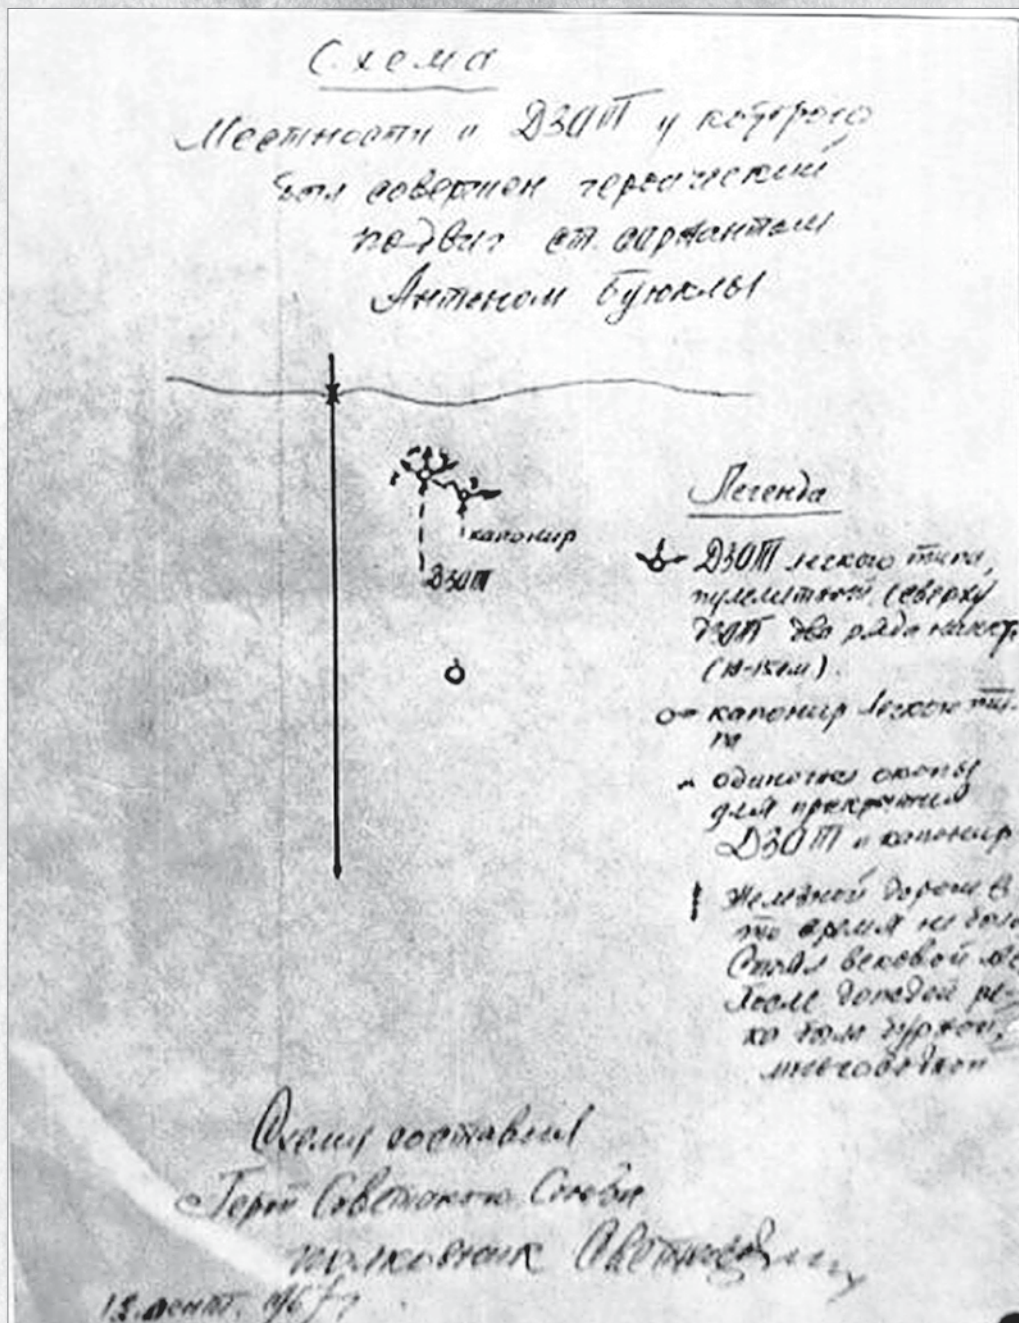 Схема
Местности и ДЗОТ у которого
был совершен героический
подвиг ст. сержантом
Антоном Буюклы
капонир
ДЗОТ
Легенда
ДЗОТ легкого типа,
пулеметный, сверху
ДЗОТ два ряда накат
(10-15см).
капонир легкого ти-
па
одиночные окопы
для прикрытия
ДЗОТ и капонир
Железной дороги в
то время не было
Стоял вековой лес
После дождей ре-
ка была бурной,
многоводной
Схему составил
Герой Советского Союза
полковник
12 сент. 1967 г.